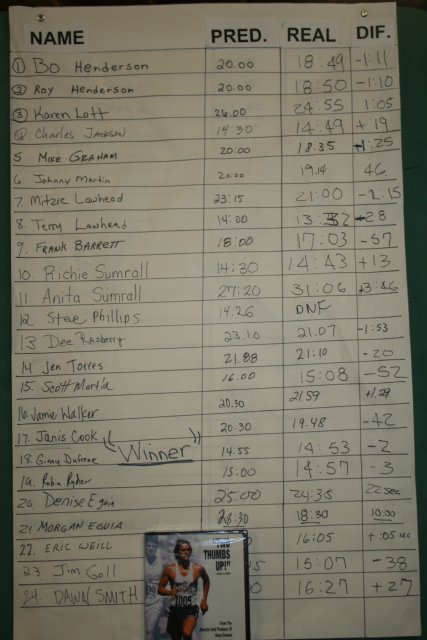 NAME PRED. REAL DIF.
1 Bo Henderson 20.00 18:49 -1:11
2 Roy Henderson 20.00 18:50 -1:10
3 Karen Lott 26.00 24:55 1:05
4 Charles Jackson 14 30 14:49 + 19
5 MIKE GRAHAM 20:00 18.35 +1:25
6. Johnny Martin 20:00 19.14 46
7. Mitzie Lawhead 23:15 21:00 -2:15
8. Terry Lawhead 14:00 13:32 28
9. FRANK BARRETT 18:00 17:03 -57
10. Richie Sumrall 14:30 14:43 +13
11. Anita Sumrall 27:20 31:06 +3:46
12. Steve Phillips 14.26 DNF
13 Dee Rasberry 23.10 21.07 -1:53
14 Jen Torres 21.88 21:10 -20
15. Scott Martin 16.00 15:08 -52
16. Jamie Walker 20.30 21 59 +1.29
17. Janis Cook 20.30 19.48 -42
18. Ginny Dufrene "Winner" 14:55 14:53 -2
19. Robin Ryder 15:00 14:57 -3
20. Denise Eguia 25:00 24:38 22 sec
21. MORGAN EGUIA 28:30 18:30 10:00
22. ERIC WEILL 16:05 + :05 sec
23. Jim Goll 15 15:07 -38
24. DAWN SMITH 0 16:27 +27
"TWO
THUMBS
UP!"
1005